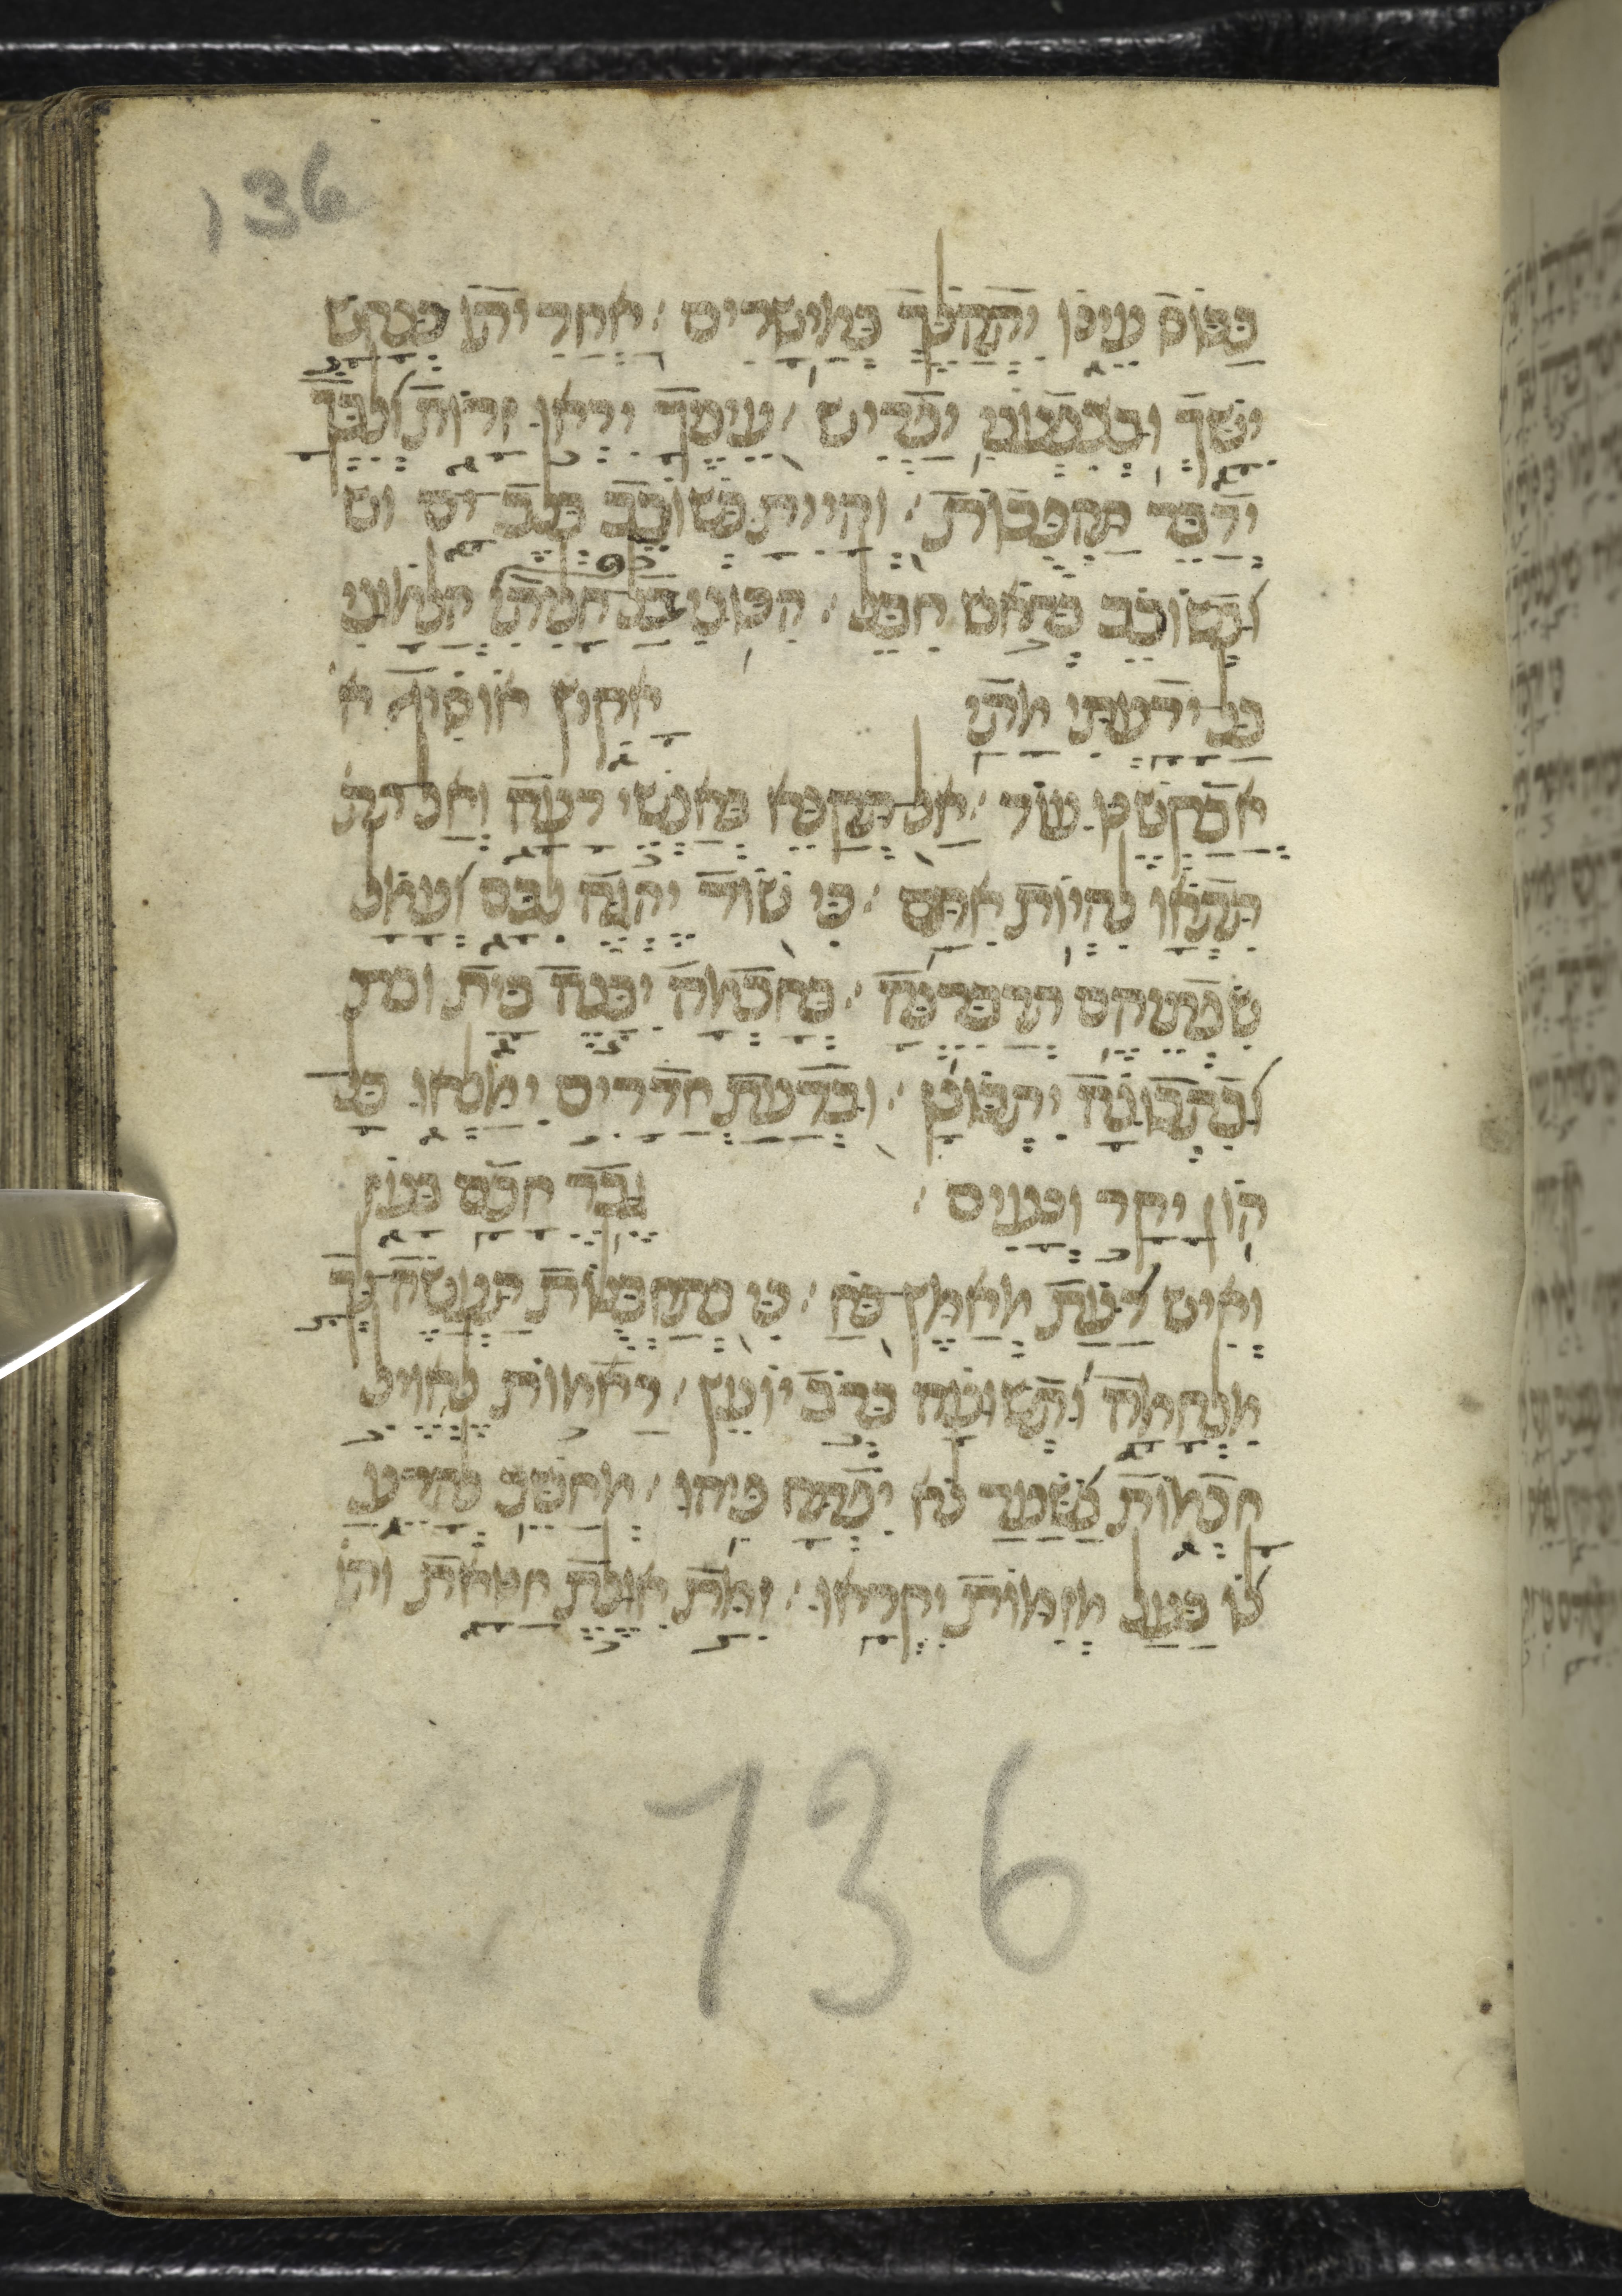 136
בכוס עינו יתהלך במישרים׃ אחריתו כנחש
ישך וכצפעוני יפריש׃ עיניך יראו זרות ולבך
ידבר תהפכות׃ והיית כשוכב בלב ים וכ
וכשוכב בראש חבל׃ הכוני בל חליתי הלמוני
בל ידעתי מתי אקיץ אוסיף א
אבקשנו עוד׃ אל תקנא באנשי רעה ואל תת
תתאו להיות אתם׃ כי שוד יהגה לבם ועמל
שפתיהם תדברנה׃ בחכמה יבנה בית ובת
ובתבונה יתכונן׃ ובדעת חדרים ימלאו כל
הון יקר ונעים׃ גבר חכם בעוז
ואיש דעת מאמץ כח׃ כי בתחבולות תעשה לך
מלחמה ותשועה ברב יועץ׃ ראמות לאויל
חכמות בשער לא יפתח פיהו׃ מחשב להרע
לו בעל מזמות יקראו׃ זמת אולת חטאת ותו
136